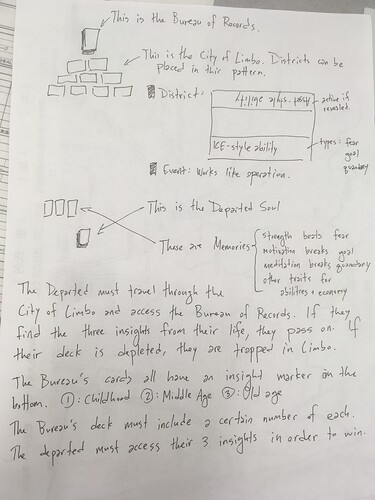 This is the Bureau of Records.
This is the City of Limbo. Districts can be
placed in this pattern.
District:
active if
revealed.
ICE-style ability
types: fear
goal
quandary
Event: Works like operation.
This is the Departed Soul
These are Memories
strength beats fear
motivation breaks goal
meditation breaks quandary
other traits for
abilities + economy
The Departed must travel through the
City of Limbo and access the Bureau of Records. If they
find the three insights from their life, they pass on. If
their deck is depleted, they are trapped in Limbo.
The Bureau's cards all have an insight marker on the
bottom. ①: Childhood ②: Middle Age ③: Old age
The Bureau's deck must include a certain number of each.
The departed must access their 3 insights in order to win.